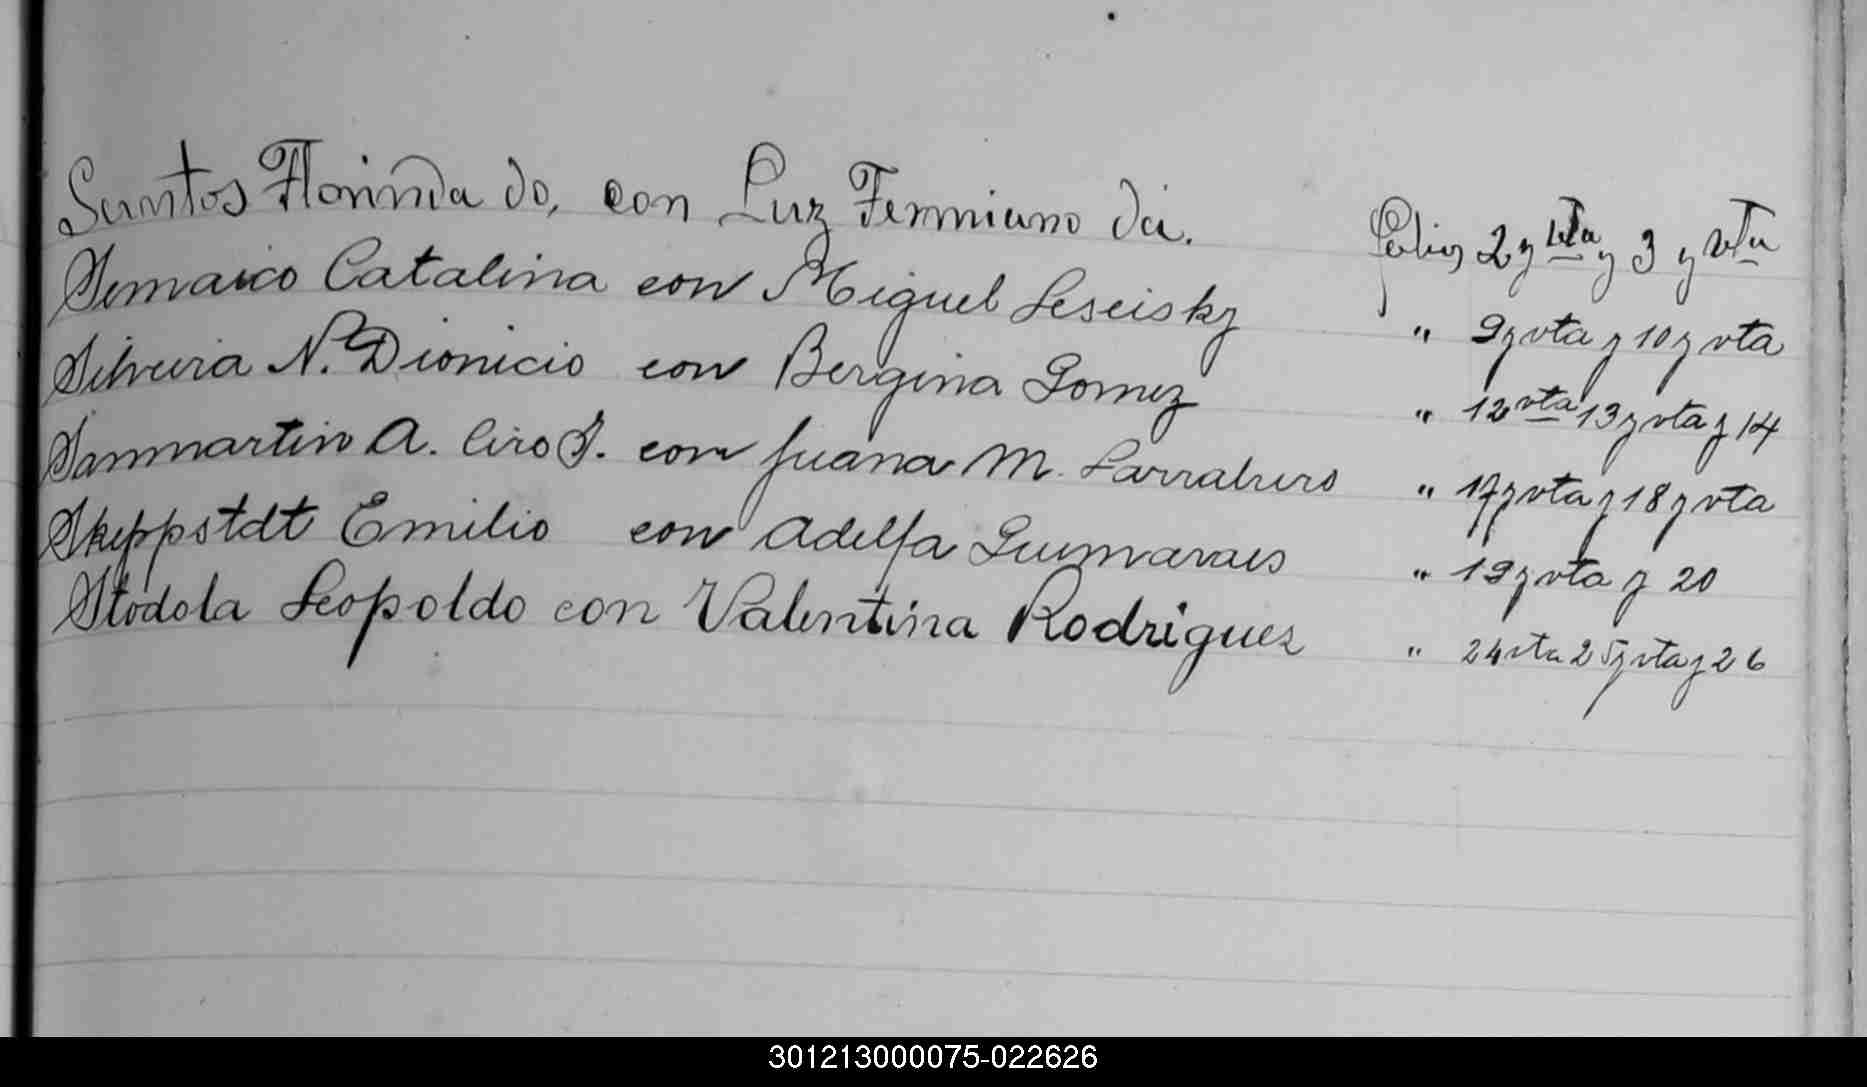 Santos Florinda do, con Luz Fermiano da. Folios 2 y vta y 3 y vta
Semaico Catalina con Miguel Leseisky " 9 y vta y 10 y vta
Silveira N. Dionicio con Bergina Gomez " 12 vta 13 y vta y 14
Sanmartin A. Ciro J. con Juana M. Larraburo " 17 y vta y 18 y vta
Skeppstdt Emilio con Adelfa Guimaraes " 19 y vta y 20
Stodola Leopoldo con Valentina Rodriguez " 24 vta 25 y vta y 26
301213000075-022626